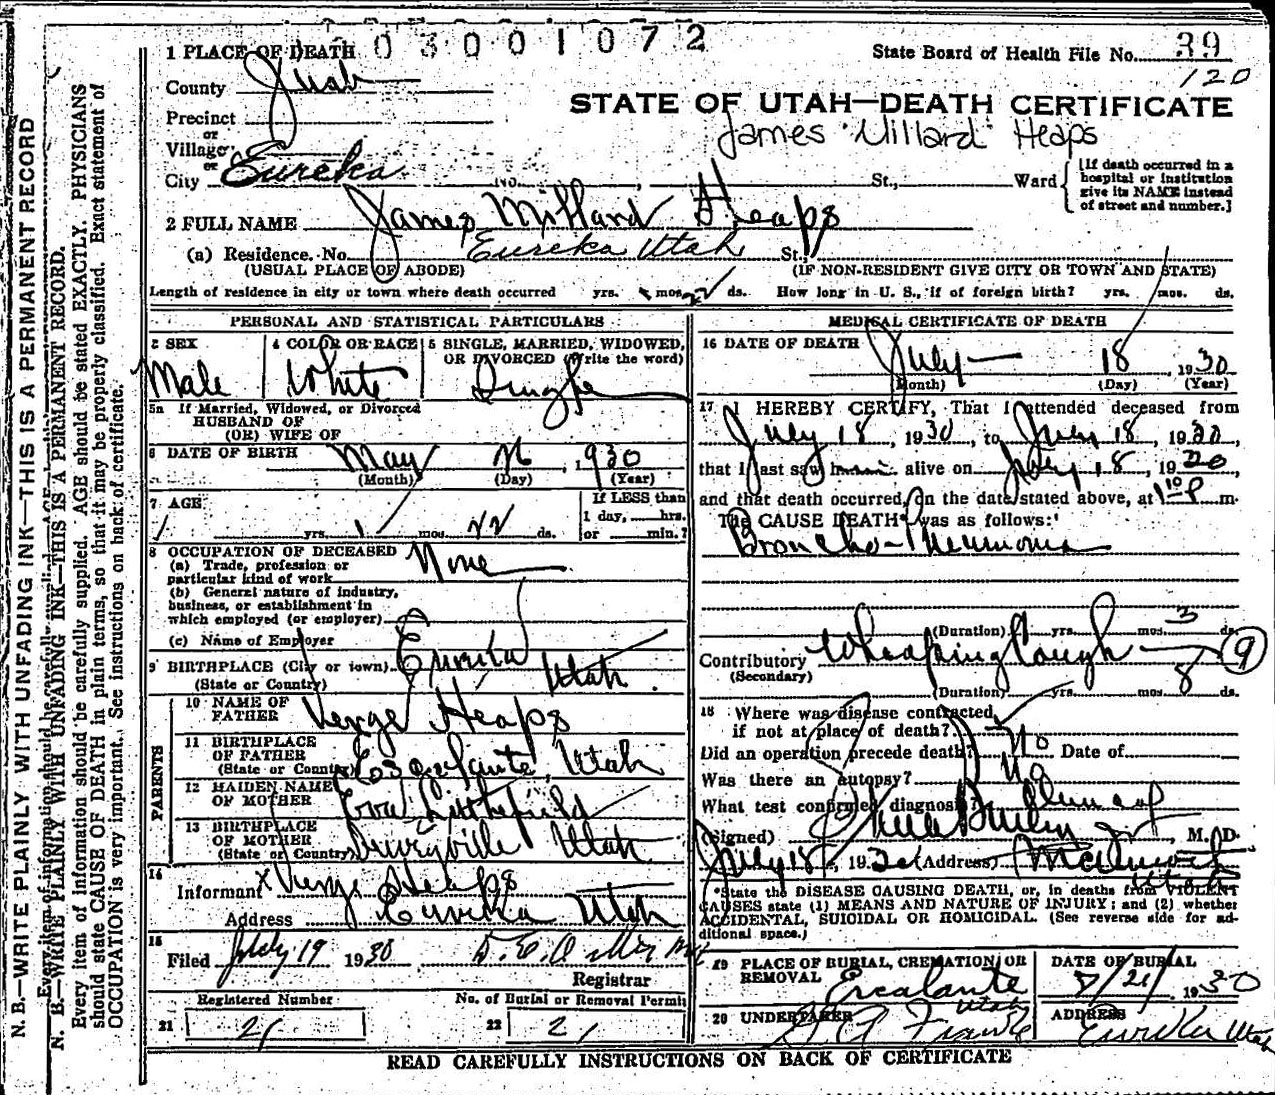 0 3 0 0 1 0 7 2
State Board of Health File No. 39
120
1 PLACE OF DEATH
County Juab
STATE OF UTAH—DEATH CERTIFICATE
Precinct
or
James Millard Heaps
Village
or
City Eureka No. St., Ward
[If death occurred in a
hospital or institution
give its NAME instead
of street and number.]
2 FULL NAME James Millard Heaps
(a) Residence. No. Eureka Utah St.,
(USUAL PLACE OF ABODE) (IF NON-RESIDENT GIVE CITY OR TOWN AND STATE)
Length of residence in city or town where death occurred yrs. mos. 22 ds. How long in U. S., if of foreign birth? yrs. mos. ds.
PERSONAL AND STATISTICAL PARTICULARS
3 SEX 4 COLOR OR RACE 5 SINGLE, MARRIED, WIDOWED,
OR DIVORCED (Write the word)
Male White Single
5a If Married, Widowed, or Divorced
HUSBAND OF
(OR) WIFE OF
6 DATE OF BIRTH May 26, 1930
(Month) (Day) (Year)
7 AGE If LESS than
1 day, hrs.
yrs. 1 mos. 22 ds. or min.?
8 OCCUPATION OF DECEASED None
(a) Trade, profession or
particular kind of work
(b) General nature of industry,
business, or establishment in
which employed (or employer)
(c) Name of Employer
9 BIRTHPLACE (City or town) Eureka
(State or Country) Utah
PARENTS
10 NAME OF
FATHER Verge Heaps
11 BIRTHPLACE
OF FATHER
(State or Country) Escalante, Utah
12 MAIDEN NAME
OF MOTHER Littlefield
13 BIRTHPLACE
OF MOTHER
(State or Country) Utah
14
Informant x Verge Heaps
Address Eureka Utah
15
Filed July 19 1930
Registrar
Registered Number No. of Burial or Removal Permit
21 21 22 21
MEDICAL CERTIFICATE OF DEATH
16 DATE OF DEATH July 18, 1930
(Month) (Day) (Year)
17 I HEREBY CERTIFY, That I attended deceased from
July 18, 1930, to July 18, 1930,
that I last saw him alive on July 18, 1930
and that death occurred, on the date stated above, at 1 10 P m.
The CAUSE DEATH was as follows:
Broncho-Pneumonia
(Duration) yrs. mos. 3 ds.
Contributory Whooping Cough 9
(Secondary)
(Duration) yrs. mos. 8 ds.
18 Where was disease contracted
if not at place of death?
Did an operation precede death? No Date of
Was there an autopsy? No
What test confirmed diagnosis?
(Signed) M. D.
July 18, 1930 (Address)
*State the DISEASE CAUSING DEATH, or, in deaths from VIOLENT
CAUSES state (1) MEANS AND NATURE OF INJURY; and (2) whether
ACCIDENTAL, SUICIDAL OR HOMICIDAL. (See reverse side for ad-
ditional space.)
19 PLACE OF BURIAL, CREMATION OR
REMOVAL Escalante
Utah
DATE OF BURIAL
7/21/ 1930
20 UNDERTAKER
ADDRESS
Eureka Utah
READ CAREFULLY INSTRUCTIONS ON BACK OF CERTIFICATE
N. B.—WRITE PLAINLY WITH UNFADING INK—THIS IS A PERMANENT RECORD
N. B.—WRITE PLAINLY WITH UNFADING INK—THIS IS A PERMANENT RECORD.
Every item of information should be carefully supplied. AGE should be stated EXACTLY. PHYSICIANS
should state CAUSE OF DEATH in plain terms, so that it may be properly classified. Exact statement of
OCCUPATION is very important. See instructions on back of certificate.